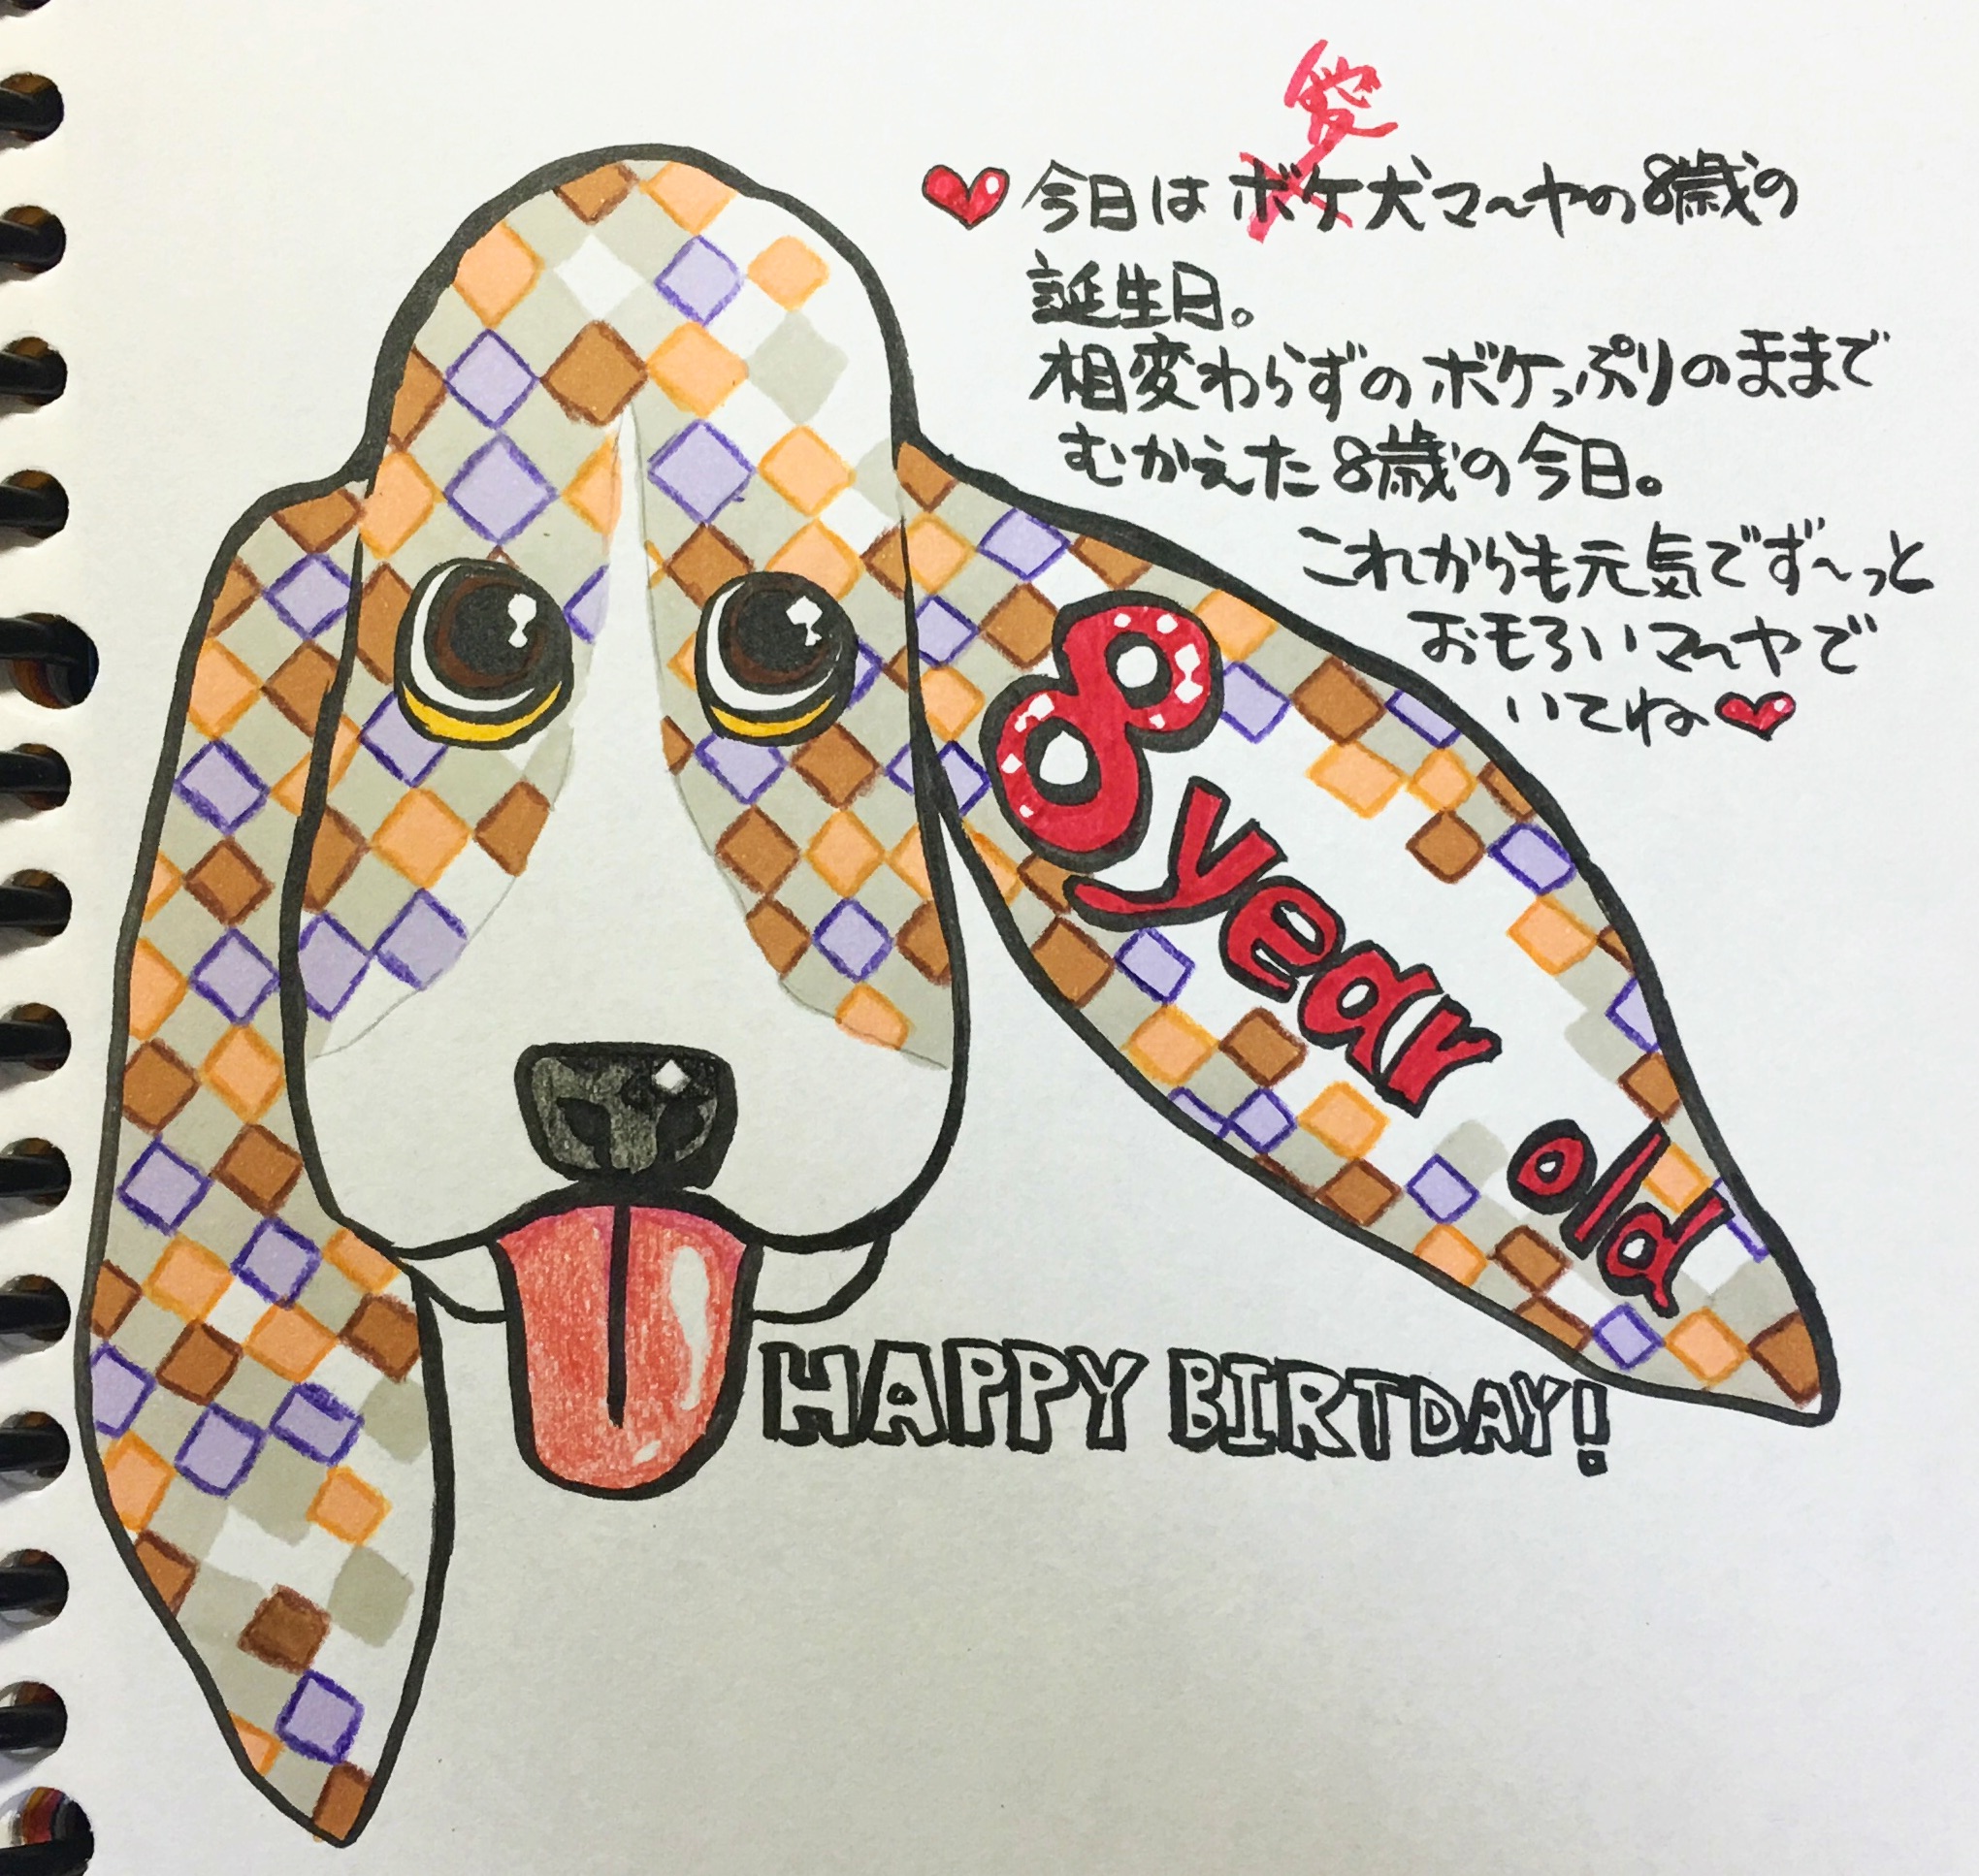 愛
今日はボケ犬マ〜ヤの8歳の
誕生日。
相変わらずのボケっぷりのままで
むかえた8歳の今日。
これからも元気でず〜っと
おもろいマ〜ヤで
いてね
8
year
old
HAPPY BIRTDAY!